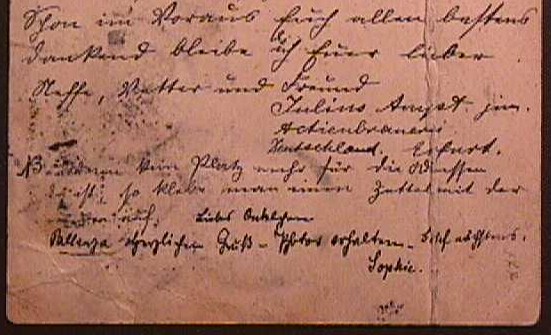 Schon im Voraus Euch allen bestens
dankend bleibe ich Euer lieber
Neffe, Vetter und Freund
Julius August jun.
Actienbrauerei
Deutschland. Erfurt.
NB kein Platz mehr für die Adressen
so klebe man einen Zettel mit der
auf. Liebes Onkelchen
Pallanza Herzlichen Gruß - erhalten.
Sophie.